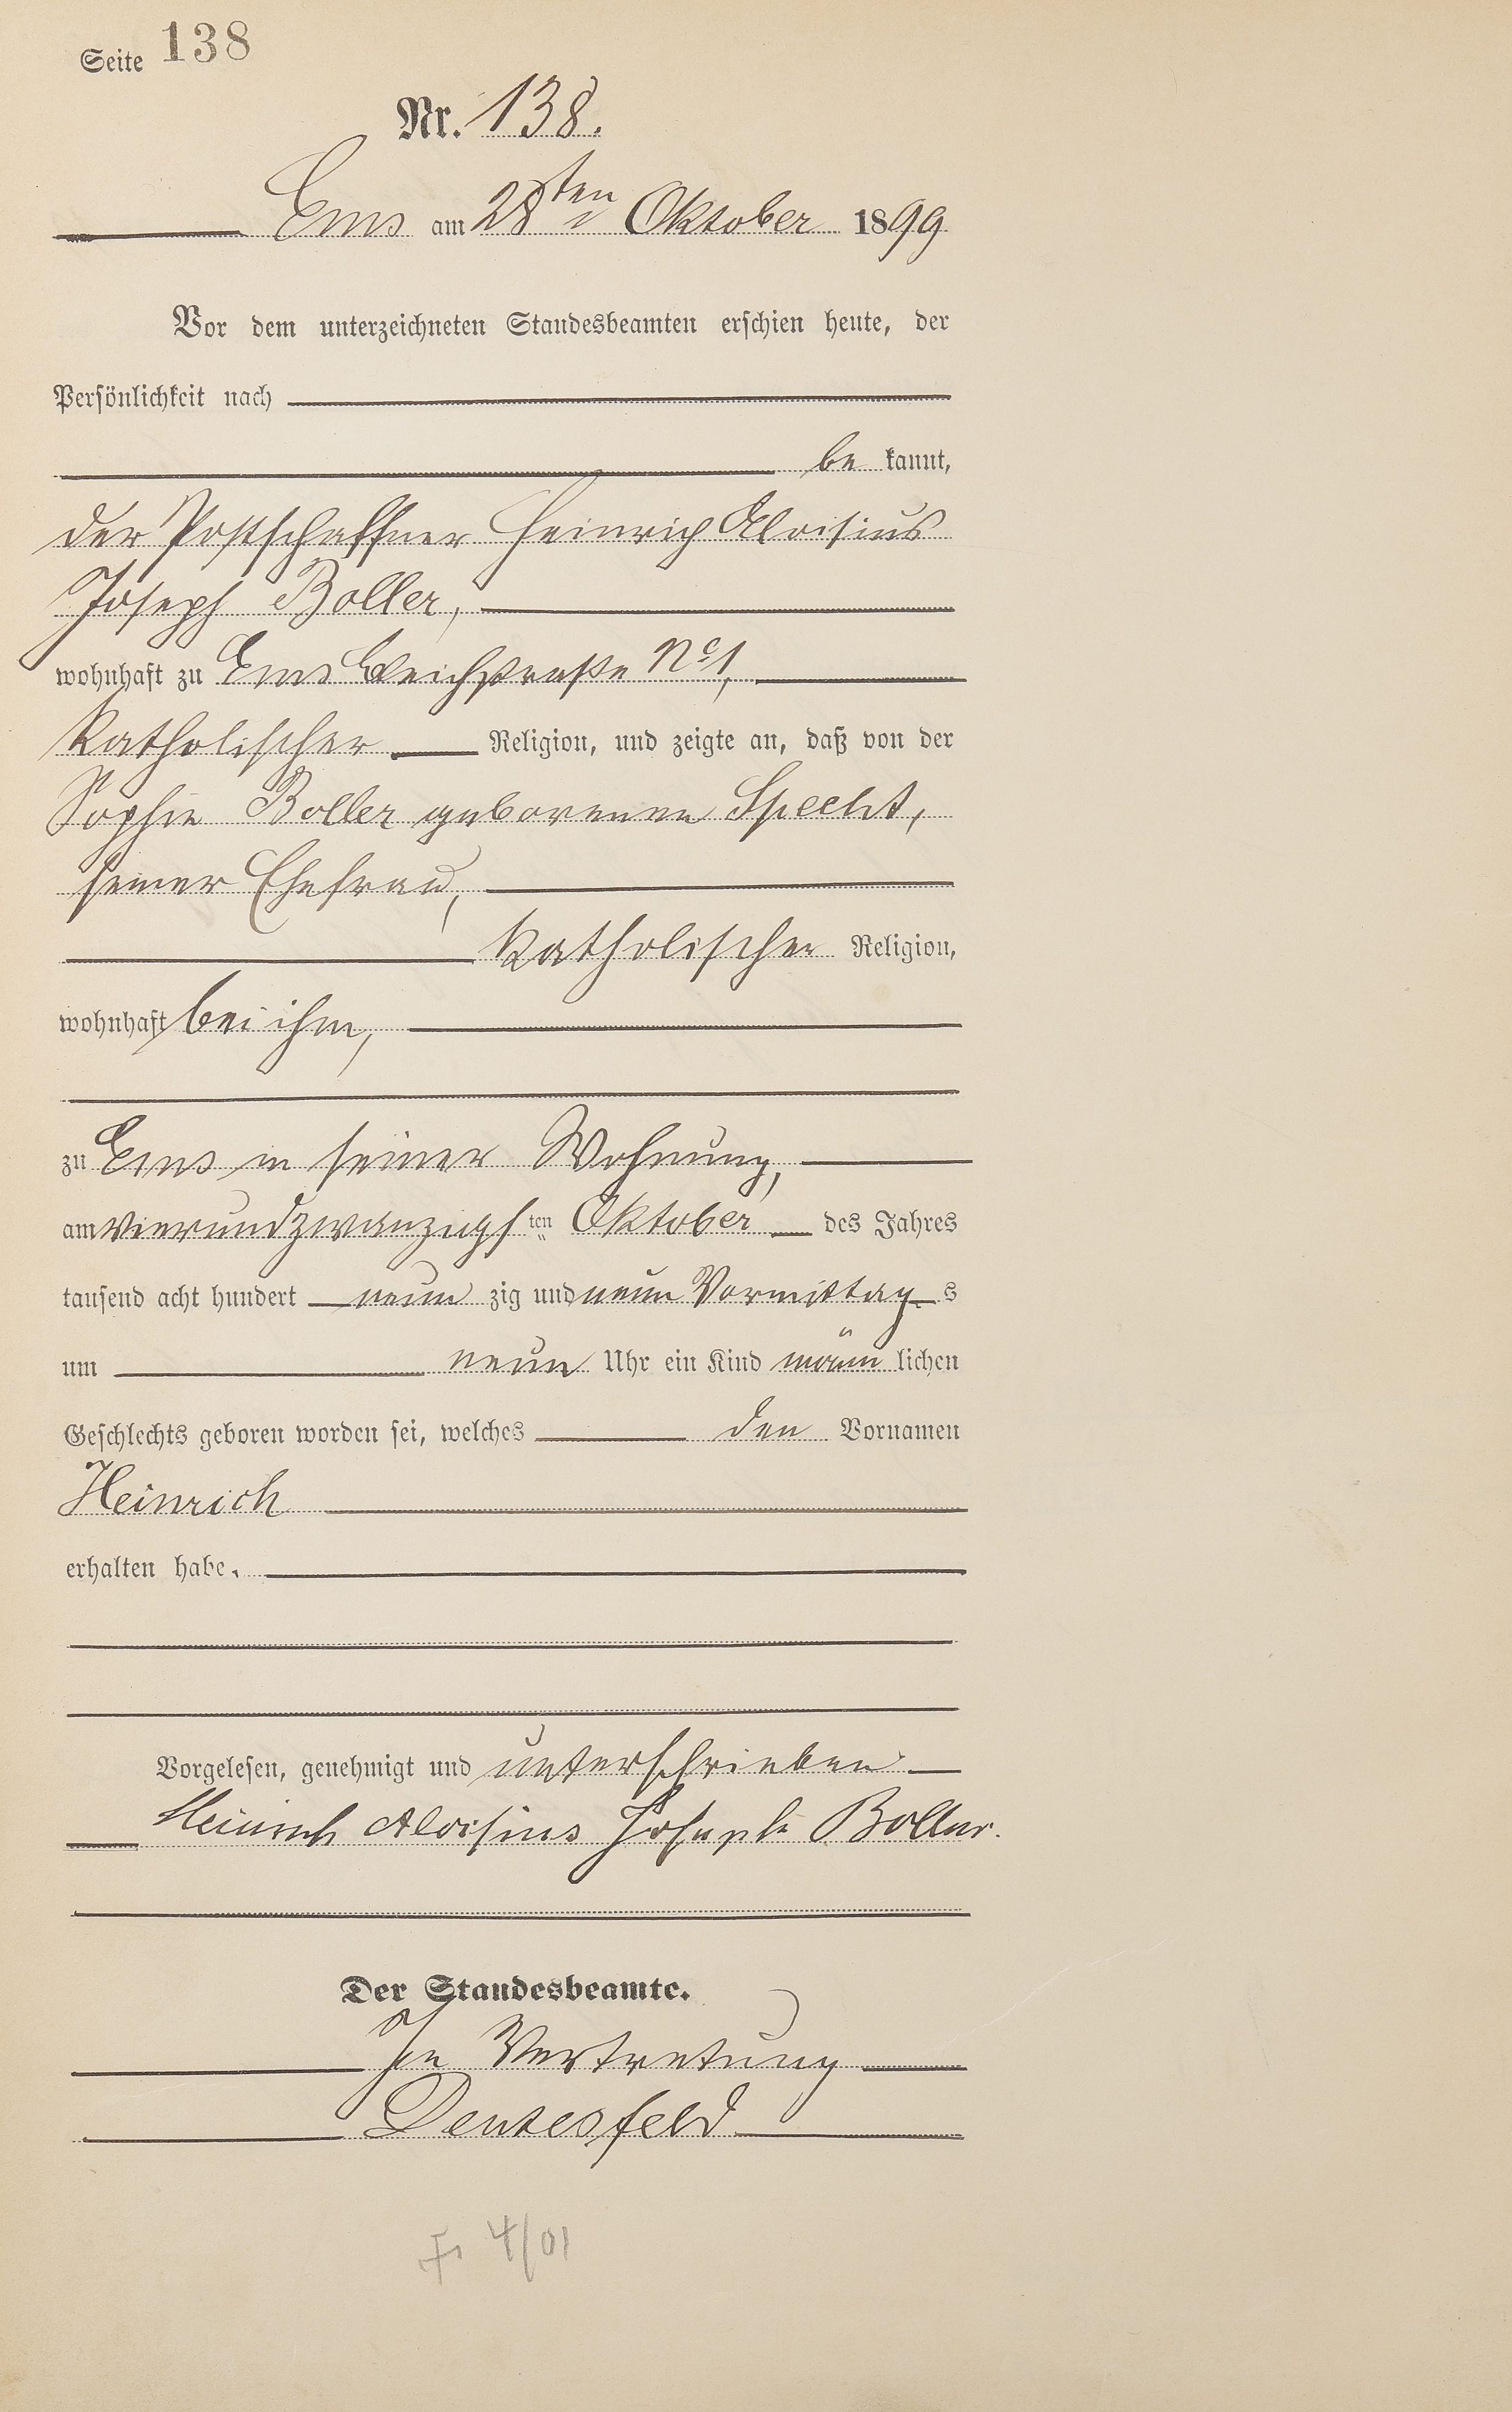 Seite 138
Nr. 138.
Ems am 28ten Oktober 1899
Vor dem unterzeichneten Standesbeamten erschien heute, der
Persönlichkeit nach
be kannt,
der Postschaffner Heinrich Aloisius
Joseph Boller,
wohnhaft zu Ems Bleichstraße No 1,
katholischer Religion, und zeigte an, daß von der
Sophie Boller geborenen Specht,
seiner Ehefrau,
katholischer Religion,
wohnhaft bei ihm,
zu Ems in seiner Wohnung,
am vierundzwanzigsten Oktober des Jahres
tausend acht hundert neun zig und neun Vormittag s
um neun Uhr ein Kind männ lichen
Geschlechts geboren worden sei, welches den Vornamen
Heinrich
erhalten habe.
Vorgelesen, genehmigt und unterschrieben
Heinrich Aloisius Joseph Boller.
Der Standesbeamte.
In Vertretung
Deutesfeld
4/01